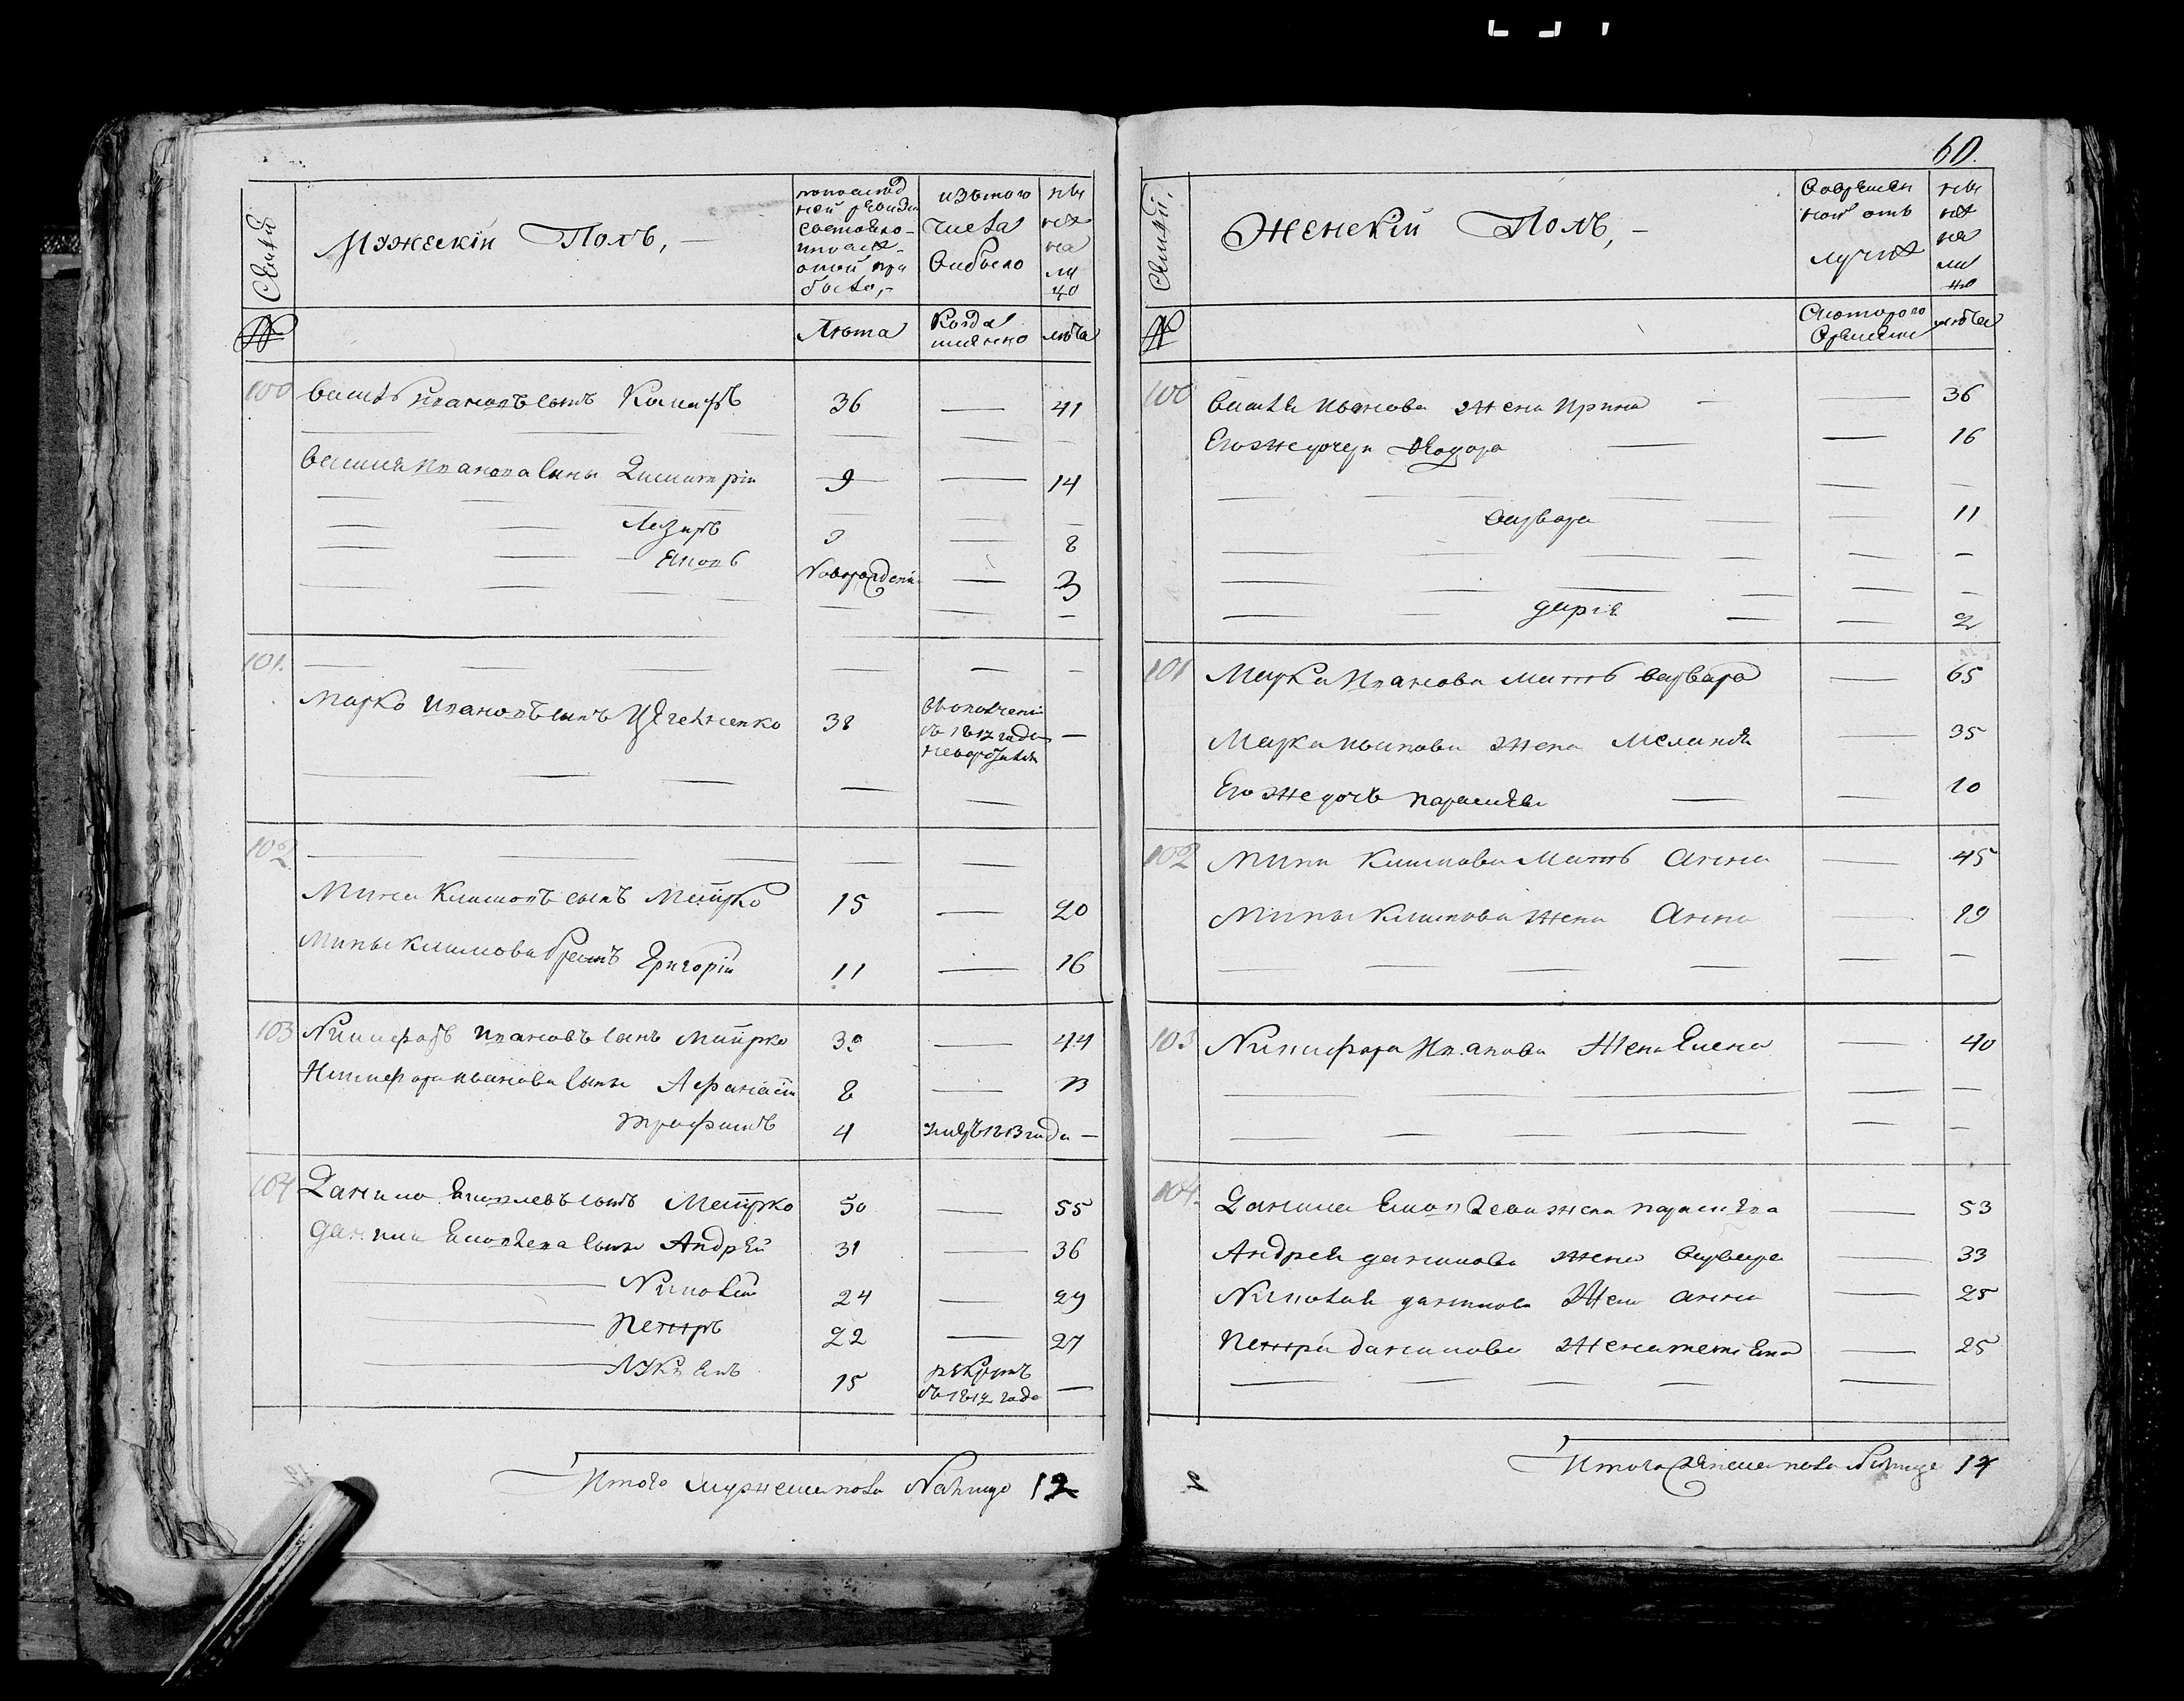 Семьи
Мужескій Полъ,
по послед
ней ревизіи
состояло
и после
оной при
было,
изъ того
числа
выбыло
ны
не
на
ли
цо
№
Лета
Когда
именно
лета
100
василь Ивановъ сынъ Комаръ
36
—
41
василия Иванова сыны Димитрій
9
—
14
Лазарь
3
—
8
Яковъ
Новорожденъ
—
3
101.
Марко Ивановъ сынъ
38
в ополчені
въ 1812 годе
—
102
Мина Климовъ сынъ Матрко
15
—
20
Мины климова братъ Григорій
11
—
16
103
Никифоръ Ивановъ сынъ Матрко
39
—
44
Никифора иванова сыны Афанасій
8
—
13
Трофимъ
4
умеръ 1813 года
—
104
Данило Яковлевъ сынъ Матрко
50
—
55
Данилы Яковлева сыны Андрей
31
—
36
Николай
24
—
29
Петръ
22
—
27
Лукъянъ
15
рекрутъ
въ 1812 годе
—
Итого мужеска пола На лицо 12
60.
Семьи,
Женскій Полъ,
во времен
ной отъ
лучке
ны
не
на
ли
цо
№
С котораго
времени
лета
100
василия Иванова жена Ирина
—
36
Его же дочери Феодора
—
16
варвара
11
дария
—
2
101
Марка Иванова мать варвара
—
65
Марка иванова жена Меланія
—
35
Его же дочь параскева
—
10
102
Мины Климова Мать Анна
—
45
Мины климова жена Анна
19
103
Никифора Иванова Жена Елена
40
104.
Данилы Яковлева жена параскева
—
53
Андрея данилова жена варвара
—
33
Николая данилова Жена анна
—
25
Петра данилова Жена татіяна
—
25
Итого женска пола На лицо 14